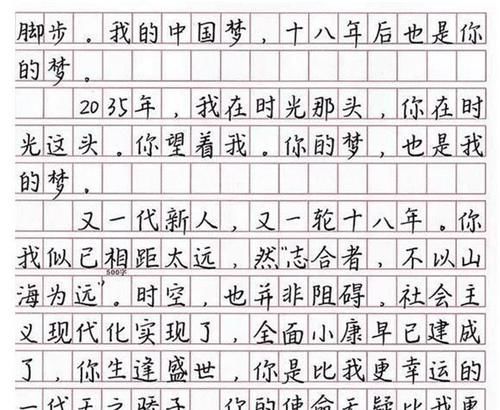 脚步。我的中国梦，十八年后也是你
的梦。
2035年，我在时光那头，你在时
光这头。你望着我。你的梦，也是我
的梦。
又一代新人，又一轮十八年。你
我似已相距太远，然“志合者，不以山
500字
海为远”。时空，也并非阻碍，社会主
义现代化实现了，全面小康早已建成
了，你生逢盛世，你是比我更幸运的
一代天之骄子，你的使命无疑比我更